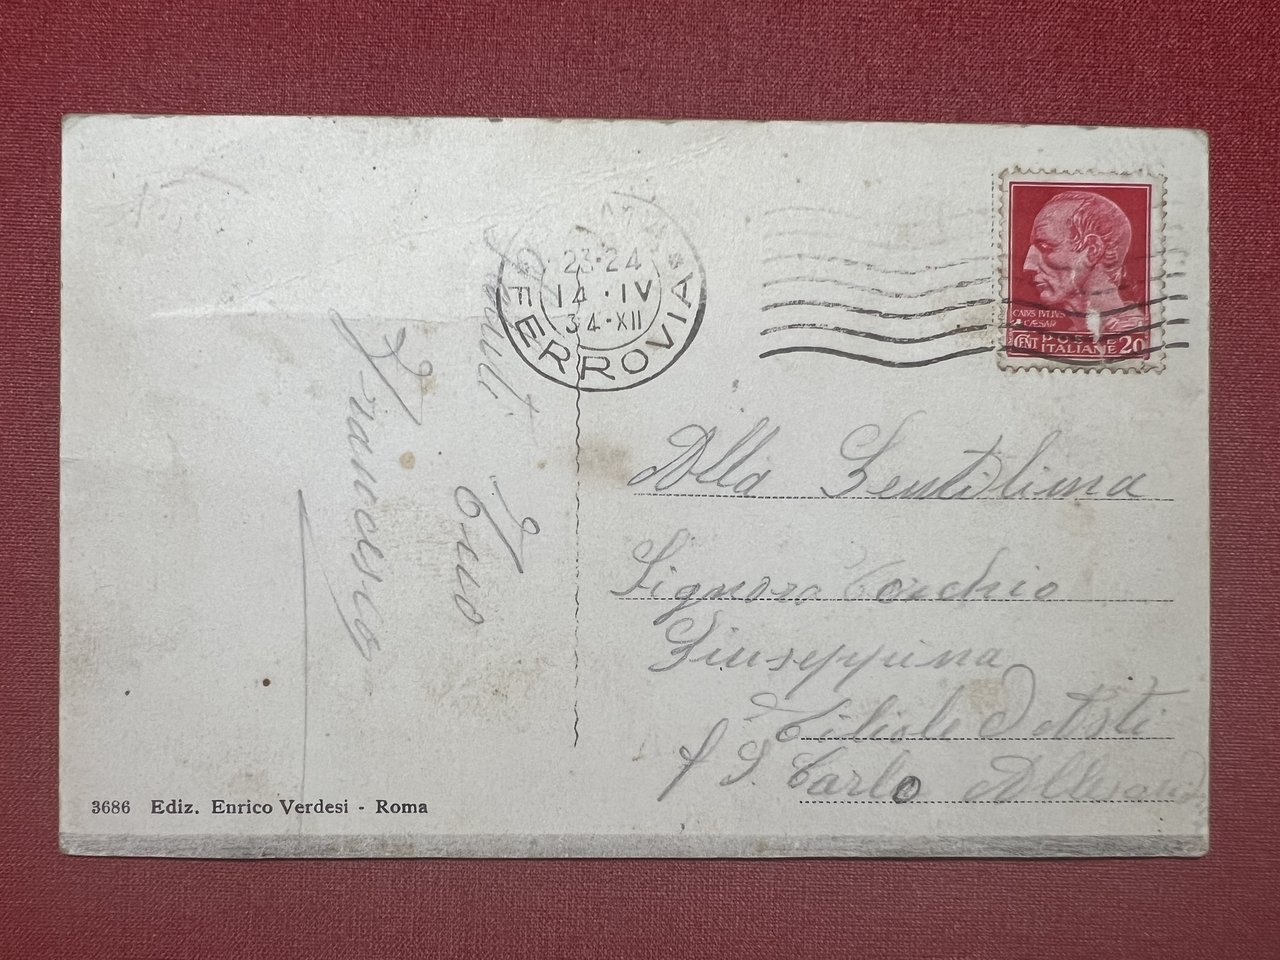 ROMA
FERROVIA
23-24
14·IV
34·XII
CAIVS IVLIVS
CÆSAR
CENT POSTE ITALIANE 20
Saluti
Tuo
Francesco
Alla Gentilima
Signora Torchio
Giuseppina
Asti
S. Carlo
3686 Ediz. Enrico Verdesi - Roma